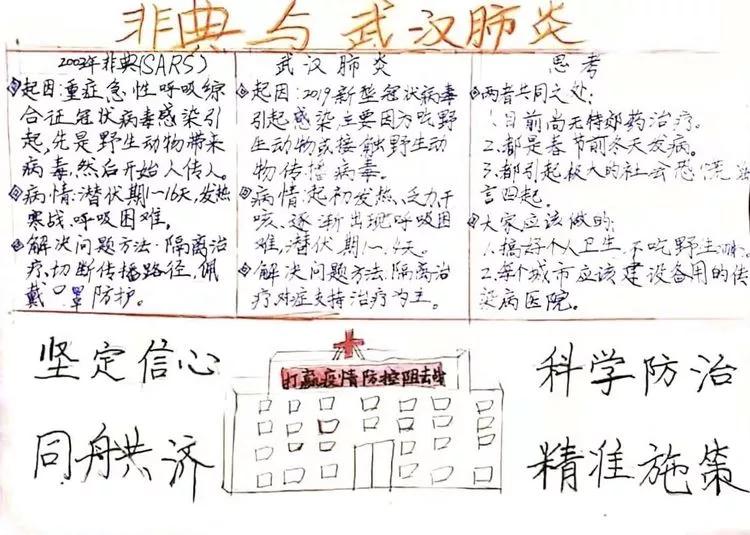 非典与武汉肺炎
2002年非典(SARS)
起因:重症急性呼吸综
合征冠状病毒感染引
起,先是野生动物带来
病毒,然后开始人传人。
病情:潜伏期1~16天,发热
寒战、呼吸困难。
解决问题方法:隔离治
疗,切断传播路径,佩
戴口罩防护。
武汉肺炎
起因:2019新型冠状病毒
引起感染主要因为吃野
生动物或接触野生动
物传播病毒。
病情:起初发热、乏力干
咳、逐渐出现呼吸困
难,潜伏期1~14天。
解决问题方法:隔离治
疗,对症支持治疗为主。
思考
两者共同之处:
1.目前尚无特效药治疗。
2.都是春节前冬天发病。
3.都引起极大的社会恐慌
言四起。
大家应该做的:
1.搞好个人卫生,不吃野生
2.每个城市应该建设备用的传
染病医院。
坚定信心
同舟共济
打赢疫情防控阻击战
科学防治
精准施策